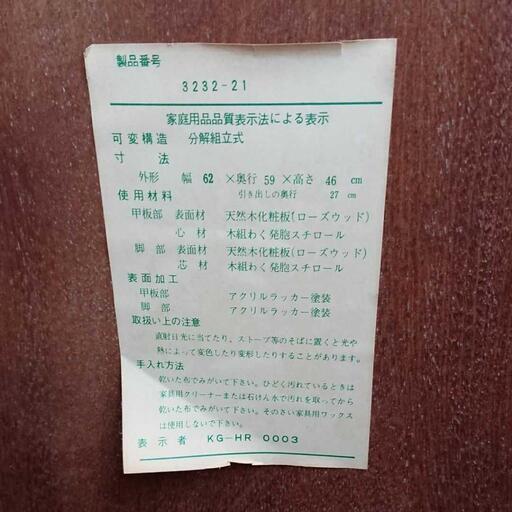 製品番号
3232-21
家庭用品品質表示法による表示
可変構造 分解組立式
寸法
外形 幅 62 ×奥行 59 ×高さ 46 cm
引き出しの奥行 27 cm
使用材料
甲板部 表面材 天然木化粧板(ローズウッド)
心材 木組わく発胞スチロール
脚部 表面材 天然木化粧板(ローズウッド)
芯材 木組わく発胞スチロール
表面加工
甲板部 アクリルラッカー塗装
脚部 アクリルラッカー塗装
取扱い上の注意
直射日光に当てたり、ストーブ等のそばに置くと光や
熱によって変色したり変形したりすることがあります。
手入れ方法
乾いた布でみがいて下さい。ひどく汚れているときは
家具用クリーナーまたは石けん水で汚れを取ってから
乾いた布でみがいて下さい。そのさい家具用ワックス
は使用しないで下さい。
表示者 KG-HR 0003